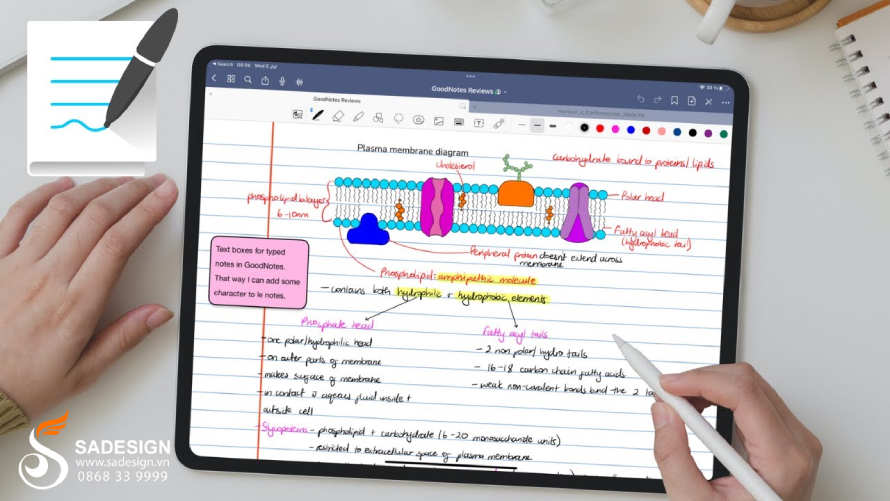 Search 09:06 Wed 5 Jul
30 %
GoodNotes Reviews
GoodNotes Reviews
Plasma membrane diagram
cholesterol
carbohydrate bound to proteins/lipids
phospholipid bilayer
6-10nm
Polar head
Fatty acyl head
(hydrophobic tail)
Peripheral protein doesnt extend across
membrane
Text boxes for typed
notes in GoodNotes.
That way I can add some
character to le notes.
Phospholipid: amphipathic molecule
- contains both hydrophilic + hydrophobic elements
Phosphate head
- one polar/hydrophilic head
- on outer parts of membrane
- makes surface of membrane
- in contact c aqeous fluid inside +
outside cell
Fatty acyl tails
- 2 non polar/hydro tails
- 16-18 carbon chain fatty acids
- weak non-covalent bonds bind the 2
- phospholipid + carbohydrate (6-20 monosaccharide units)
- restricted to extracellular space of plasma membrane
SADESIGN
www.sadesign.vn
0868 33 9999